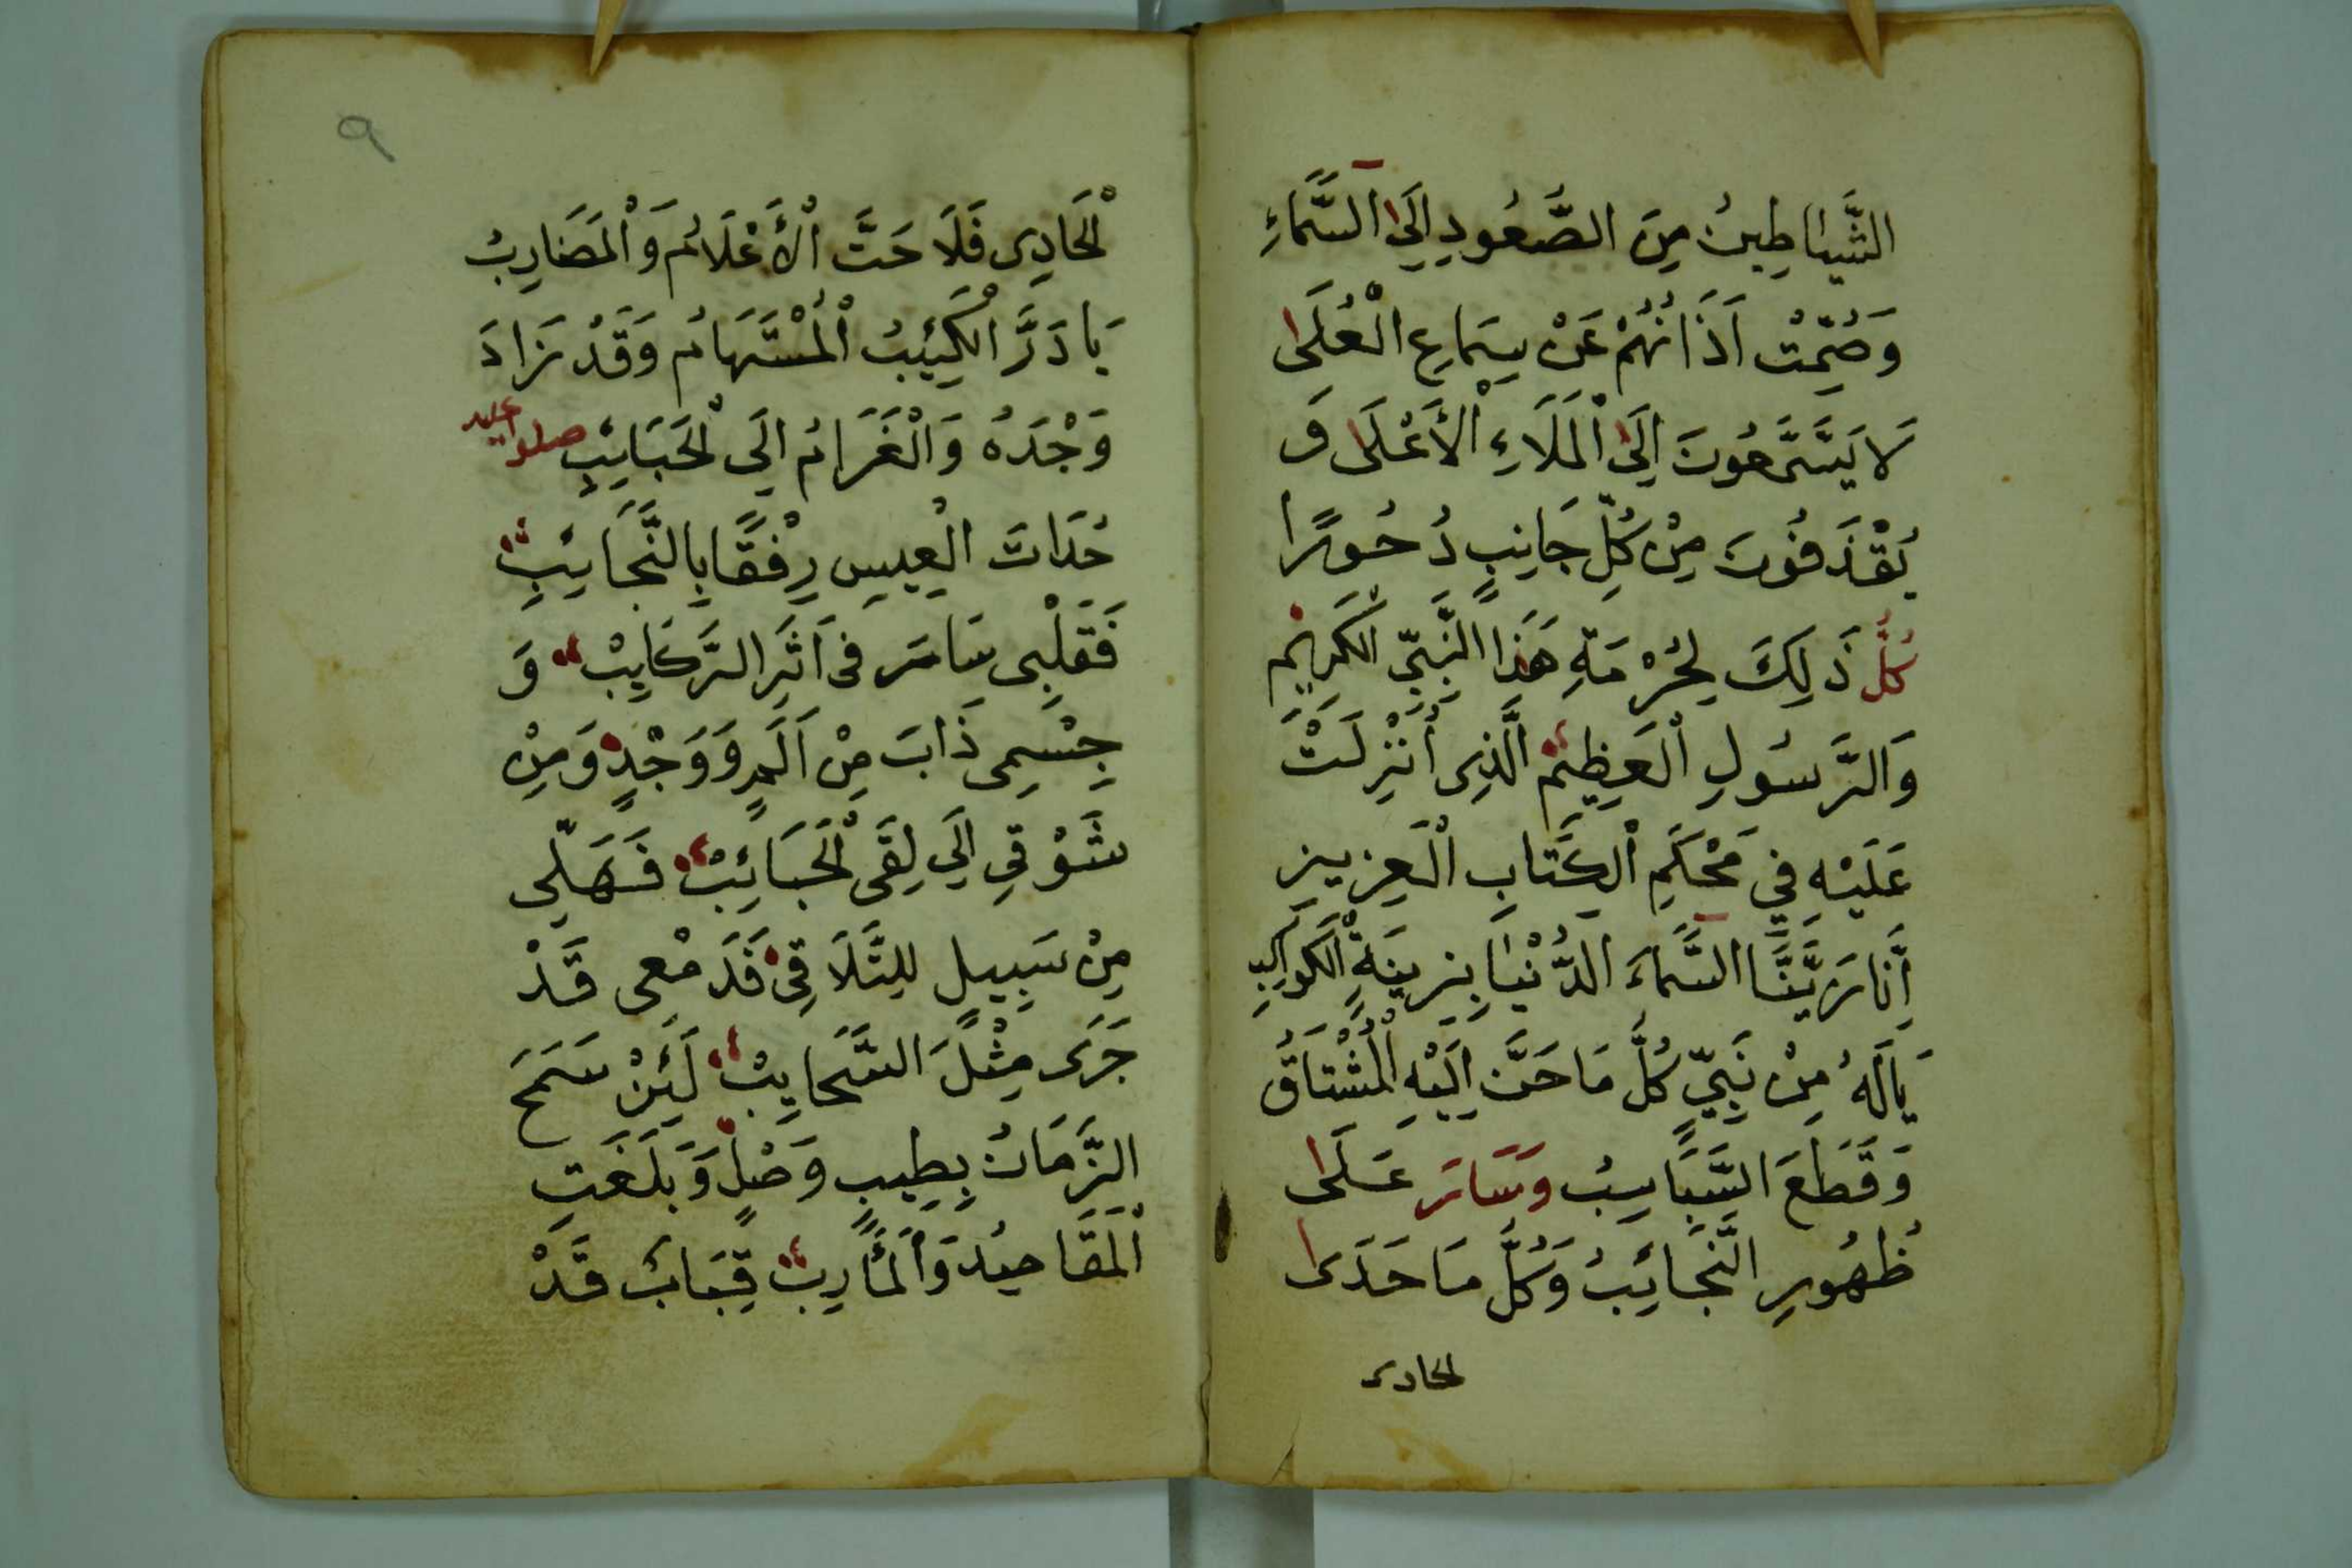 الشَّيَاطِينُ مِنَ الصُّعُودِ اِلَى السَّمَاءِ
وَصُمَّتْ اَذَانُهُمْ عَنْ سِمَاعِ الْعُلَى
لَا يَسَّمَّعُونَ اِلَى الْمَلَاءِ الْأَعْلَى وَ
يُقْذَفُونَ مِنْ كُلِّ جَانِبٍ دُحُورًا
كُلُّ ذَلِكَ لِحُرْمَةِ هَذَا النَّبِيِّ الْكَرِيمِ
وَالرَّسُولِ الْعَظِيمِ الَّذِى أُنْزِلَتْ
عَلَيْهِ فِي مَحْكَمِ الْكِتَابِ الْعَزِيزِ
اِنَّا زَيَّنَّا السَّمَاءَ الدُّنْيَا بِزِينَةٍ الْكَوَاكِبِ
يَالَهُ مِنْ نَبِيٍّ كُلَّ مَا حَنَّ اِلَيْهِ الْمُشْتَاقُ
وَقَطَعَ السَّبَاسِبُ وَسَارَ عَلَى
ظُهُورِ النَّجَائِبُ وَكُلَّ مَا حَدَى
لحادى
٩
لْحَادِى فَلَاحَتَّ الْأَعْلَامُ وَالْمَضَارِبُ
بَادَرَّ الْكَئِيبُ الْمُسْتَهَامُ وَقَدْ زَادَ
وَجْدَهُ وَالْغَرَامُ اِلَى لْحَبَايِبِ صلوا عليه
حُدَاتَ الْعِيسِ رِفْقًا بِالنَّجَائِبِ
فَقَلْبِى سَامَرَ فِى اَثَرِ الرَّكَايِبْ وَ
جِسْمِى ذَابَ مِنْ اَلَمٍ وَوَجْدٍ وَمِنْ
شَوْقِي اِلَى لِقَى لْحَبَائِبْ فَهَلِّى
مِنْ سَبِيلٍ لِلتَّلَاقِى فَدَمْعِى قَدْ
جَرَى مِثْلَ السَّحَايِبْ لَئِنْ سَمَحَ
الزَّمَانُ بِطِيبٍ وَصْلٍ وَبَلَغَتِ
الْمَقَاصِيدُ وَالْمَأَرِبْ قِبَابٌ قَدْ